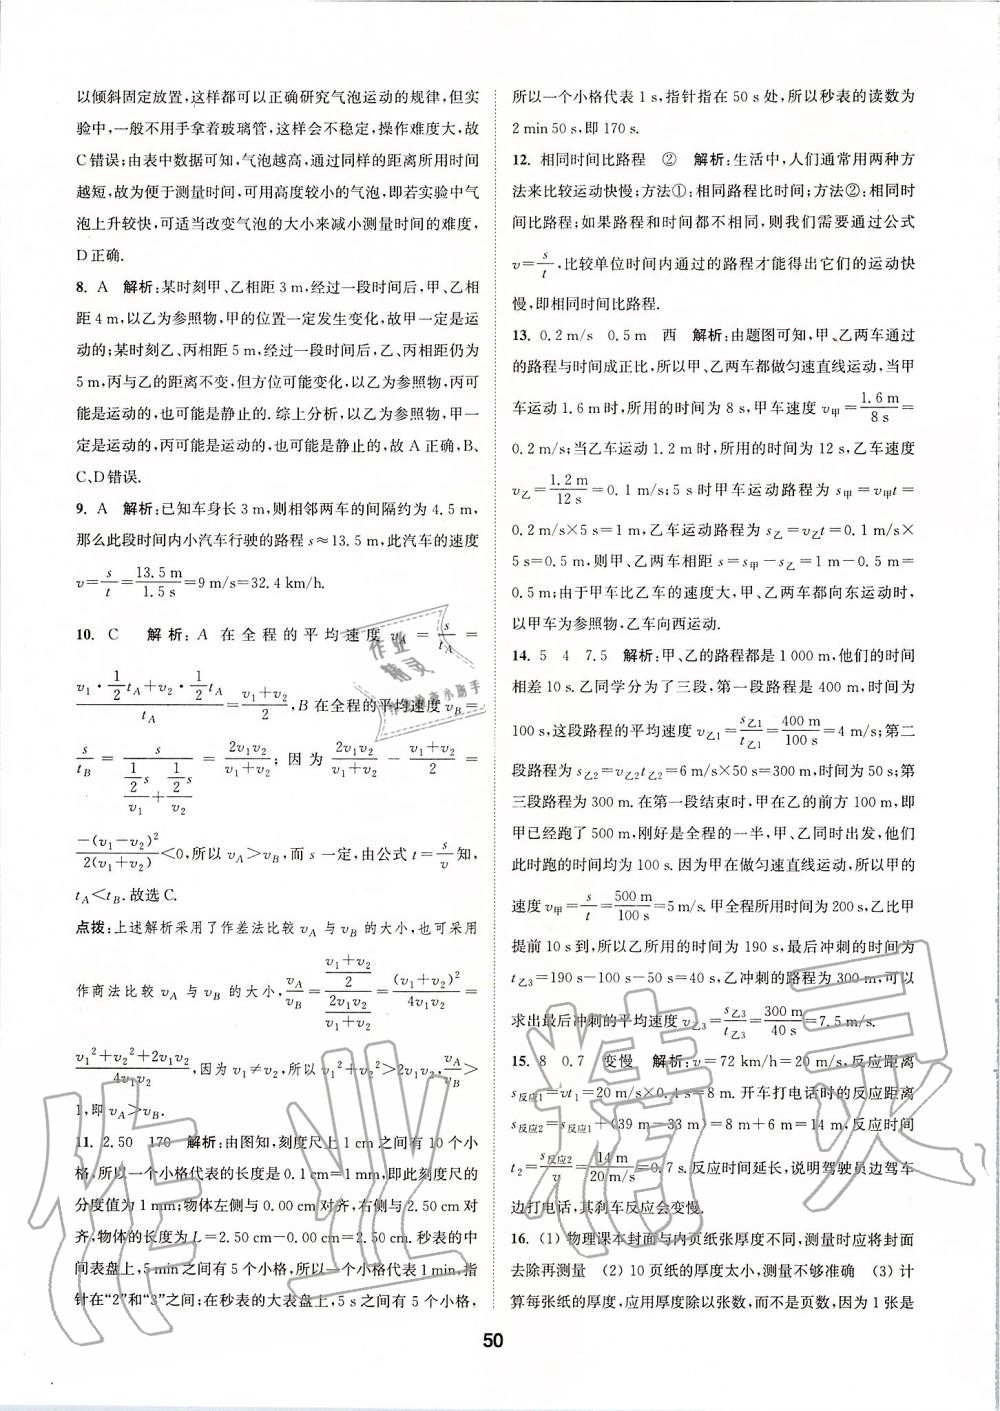 以倾斜固定放置,这样都可以正确研究气泡运动的规律,但实
验中,一般不用手拿着玻璃管,这样会不稳定,操作难度大,故
C错误;由表中数据可知,气泡越高,通过同样的距离所用时间
越短,故为便于测量时间,可用高度较小的气泡,即若实验中气
泡上升较快,可适当改变气泡的大小来减小测量时间的难度,
D正确.
8. A 解析:某时刻甲、乙相距 3 m,经过一段时间后,甲、乙相
距 4 m,以乙为参照物,甲的位置一定发生变化,故甲一定是运
动的;某时刻乙、丙相距 5 m,经过一段时间后,乙、丙相距仍为
5 m,丙与乙的距离不变,但方位可能变化,以乙为参照物,丙可
能是运动的,也可能是静止的.综上分析,以乙为参照物,甲一
定是运动的,丙可能是运动的,也可能是静止的,故 A 正确,B、
C、D错误.
9. A 解析:已知车身长 3 m,则相邻两车的间隔约为 4.5 m,
那么此段时间内小汽车行驶的路程 s≈13.5 m,此汽车的速度
v=s/t=13.5 m/1.5 s=9 m/s=32.4 km/h.
10. C 解析:A 在全程的平均速度 vA=s/tA=
(v1·1/2tA+v2·1/2tA)/tA=(v1+v2)/2,B 在全程的平均速度 vB=
s/tB=s/(1/2s/v1+1/2s/v2)=2v1v2/(v1+v2);因为 2v1v2/(v1+v2)-(v1+v2)/2=
-(v1-v2)²/2(v1+v2)<0,所以 vA>vB,而 s 一定,由公式 t=s/v知,
tA<tB.故选 C.
点拨:上述解析采用了作差法比较 vA 与 vB 的大小,也可采用
作商法比较 vA 与 vB 的大小,vA/vB=((v1+v2)/2)/(2v1v2/(v1+v2))=(v1+v2)²/4v1v2=
(v1²+v2²+2v1v2)/4v1v2,因为 v1≠v2,所以 v1²+v2²>2v1v2,vA/vB>
1,即 vA>vB.
11. 2.50 170 解析:由图知,刻度尺上 1 cm 之间有 10 个小
格,所以一个小格代表的长度是 0.1 cm=1 mm,即此刻度尺的
分度值为 1 mm;物体左侧与 0.00 cm 对齐,右侧与 2.50 cm 对
齐,物体的长度为 L=2.50 cm-0.00 cm=2.50 cm.秒表的中
间表盘上,5 min 之间有 5 个小格,所以一个小格代表 1 min,指
针在“2”和“3”之间;在秒表的大表盘上,5 s 之间有 5 个小格,
所以一个小格代表 1 s,指针指在 50 s 处,所以秒表的读数为
2 min 50 s,即 170 s.
12. 相同时间比路程 ② 解析:生活中,人们通常用两种方
法来比较运动快慢;方法①:相同路程比时间;方法②:相同时
间比路程;如果路程和时间都不相同,则我们需要通过公式
v=s/t,比较单位时间内通过的路程才能得出它们的运动快
慢,即相同时间比路程.
13. 0.2 m/s 0.5 m 西 解析:由题图可知,甲、乙两车通过
的路程与时间成正比,所以甲、乙两车都做匀速直线运动,当甲
车运动 1.6 m时,所用的时间为 8 s,甲车速度 v甲=1.6 m/8 s=
0.2 m/s;当乙车运动 1.2 m 时,所用的时间为 12 s,乙车速度
v乙=1.2 m/12 s=0.1 m/s;5 s 时甲车运动路程为 s甲=v甲t=
0.2 m/s×5 s=1 m,乙车运动路程为 s乙=v乙t=0.1 m/s×
5 s=0.5 m,则甲、乙两车相距 s=s甲-s乙=1 m-0.5 m=
0.5 m;由于甲车比乙车的速度大,甲、乙两车都向东运动时,
以甲车为参照物,乙车向西运动.
14. 5 4 7.5 解析:甲、乙的路程都是 1 000 m,他们的时间
相差 10 s.乙同学分为了三段,第一段路程是 400 m,时间为
100 s,这段路程的平均速度 v乙1=s乙1/t乙1=400 m/100 s=4 m/s;第二
段路程为 s乙2=v乙2t乙2=6 m/s×50 s=300 m,时间为 50 s;第
三段路程为 300 m.在第一段结束时,甲在乙的前方 100 m,即
甲已经跑了 500 m,刚好是全程的一半,甲、乙同时出发,他们
此时跑的时间均为 100 s.因为甲在做匀速直线运动,所以甲的
速度 v甲=s/t=500 m/100 s=5 m/s.甲全程所用时间为 200 s,乙比甲
提前 10 s到,所以乙所用的时间为 190 s,最后冲刺的时间为
t乙3=190 s-100 s-50 s=40 s,乙冲刺的路程为 300 m,可以
求出最后冲刺的平均速度 v乙3=s乙3/t乙3=300 m/40 s=7.5 m/s.
15. 8 0.7 变慢 解析:v=72 km/h=20 m/s,反应距离
s反应1=vt1=20 m/s×0.4 s=8 m.开车打电话时的反应距离
s反应2=s反应1+(39 m-33 m)=8 m+6 m=14 m,反应时间
t2=s反应2/v=14 m/20 m/s=0.7 s.反应时间延长,说明驾驶员边驾车
边打电话,其刹车反应会变慢.
16. (1) 物理课本封面与内页纸张厚度不同,测量时应将封面
去除再测量 (2) 10 页纸的厚度太小,测量不够准确 (3) 计
算每张纸的厚度,应用厚度除以张数,而不是页数,因为 1 张是
50
作业精灵
作业精灵